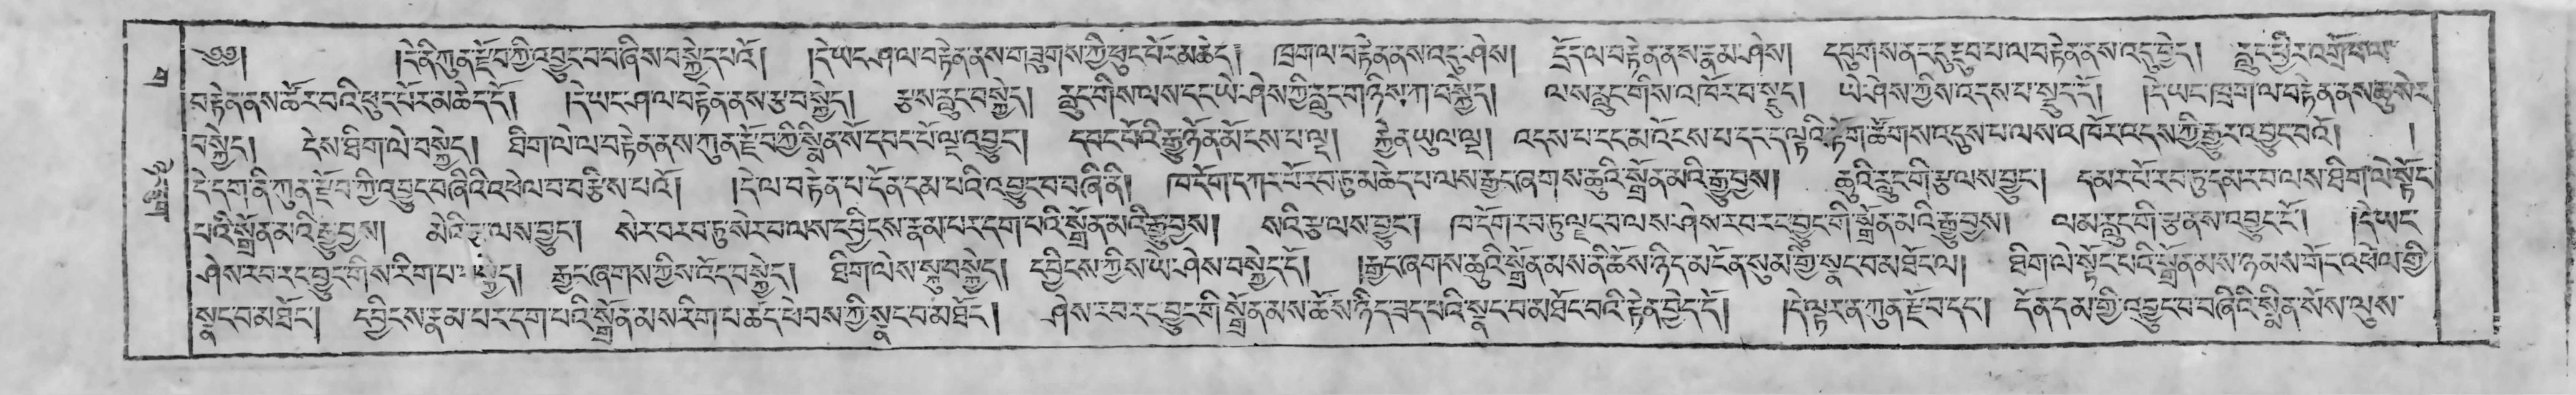 ༄༅། །དེ་ནི་ཀུན་རྫོབ་ཀྱི་འབྱུང་བ་བཞིས་བསྐྱེད་པའོ། །དེ་ཡང་ཤ་ལ་བརྟེན་ནས་གཟུགས་ཀྱི་ཕུང་པོ་རམ་ཆེད། ཁྲག་ལ་བརྟེན་ནས་འདུ་ཤེས། དྲོད་ལ་བརྟེན་ནས་རྣམ་ཤེས། དབུགས་ནང་དུ་རྔུབ་པ་ལ་བརྟེན་ནས་འདུ་བྱེད། རླུང་ཕྱིར་འགྲོ་བ་ལ་
བརྟེན་ནས་ཚོར་བའི་ཕུང་པོ་རམ་ཆེད་དོ། །དེ་ཡང་ཤ་ལ་བརྟེན་ནས་རྩ་བསྐྱེད། རྩས་རླུང་བསྐྱེད། རླུང་གིས་ལས་དང་ཡེ་ཤེས་ཀྱི་རླུང་གཉིས་ཀ་བསྐྱེད། ལས་རླུང་གིས་འཁོར་བ་སྡུད། ཡེ་ཤེས་ཀྱིས་འདས་པ་སྡུད་དོ། །དེ་ཡང་ཁྲག་ལ་བརྟེན་ནས་ཆུ་སེར་
བསྐྱེད། དེས་ཐིག་ལེ་བསྐྱེད། ཐིག་ལེ་ལ་བརྟེན་ནས་ཀུན་རྫོབ་ཀྱི་སྨིན་སོ་དབང་པོ་ལྔ་འབྱུང། དབང་པོའི་རྒྱུ་ཉོན་མོངས་པ་ལྔ། རྐྱེན་ཡུལ་ལྔ། འདས་པ་དང་མ་འོངས་པ་དང་ད་ལྟའི་རྟོག་ཚོགས་འདུས་པ་ལས་འཁོར་འདས་ཀྱི་རྒྱུར་འབྱུང་བའོ། །
དེ་དག་ནི་ཀུན་རྫོབ་ཀྱི་འབྱུང་བཞིའི་འཕེལ་བ་བརྩིས་པའོ། །དེ་ལ་བརྟེན་པ་དོན་དམ་པའི་འབྱུང་བ་བཞི་ནི། ཁ་དོག་དཀར་པོ་རབ་ཏུ་མཆེད་པ་ལས་རྒྱང་ཞགས་ཆུའི་སྒྲོན་མའི་རྒྱུ་བྱས། ཆུའི་རླུང་གི་རྩ་ལས་བྱུང། དམར་པོ་རབ་ཏུ་དམར་བ་ལས་ཐིག་ལེ་སྟོང་
པའི་སྒྲོན་མའི་རྒྱུ་བྱས། མེའི་རྩ་ལས་བྱུང། སེར་བ་རབ་ཏུ་སེར་བ་ལས་དབྱིངས་རྣམ་པར་དག་པའི་སྒྲོན་མའི་རྒྱུ་བྱས། སའི་རྩ་ལས་བྱུང། ཁ་དོག་རབ་ཏུ་ལྗང་བ་ལས་ཤེས་རབ་རང་བྱུང་གི་སྒྲོན་མའི་རྒྱུ་བྱས། ལམ་རླུང་གི་རྩ་ནས་འབྱུང་ངོ། །དེ་ཡང་
ཤེས་རབ་རང་བྱུང་གིས་རིག་པ་ རྒྱང་ཞགས་ཀྱིས་འོད་བསྐྱེད། ཐིག་ལེས་སྐུ་བསྐྱེད། དབྱིངས་ཀྱིས་ཡེ་ཤེས་བསྐྱེད་དོ། །རྒྱང་ཞགས་ཆུའི་སྒྲོན་མས་ནི་ཆོས་ཉིད་མངོན་སུམ་གྱི་སྣང་བ་མཐོང་ལ། ཐིག་ལེ་སྟོང་པའི་སྒྲོན་མས་ཉམས་གོང་འཕེལ་གྱི་
སྣང་བ་མཐོང། དབྱིངས་རྣམ་པར་དག་པའི་སྒྲོན་མས་རིག་པ་ཚད་ཕེབས་ཀྱི་སྣང་བ་མཐོང། ཤེས་རབ་རང་བྱུང་གི་སྒྲོན་མས་ཆོས་ཉིད་ཟད་པའི་སྣང་བ་མཐོང་བའི་རྟེན་བྱེད་དོ། །དེ་ལྟར་ན་ཀུན་རྫོབ་དང། དོན་དམ་གྱི་འབྱུང་བ་བཞིའི་སྨིན་སོས་ལུས་